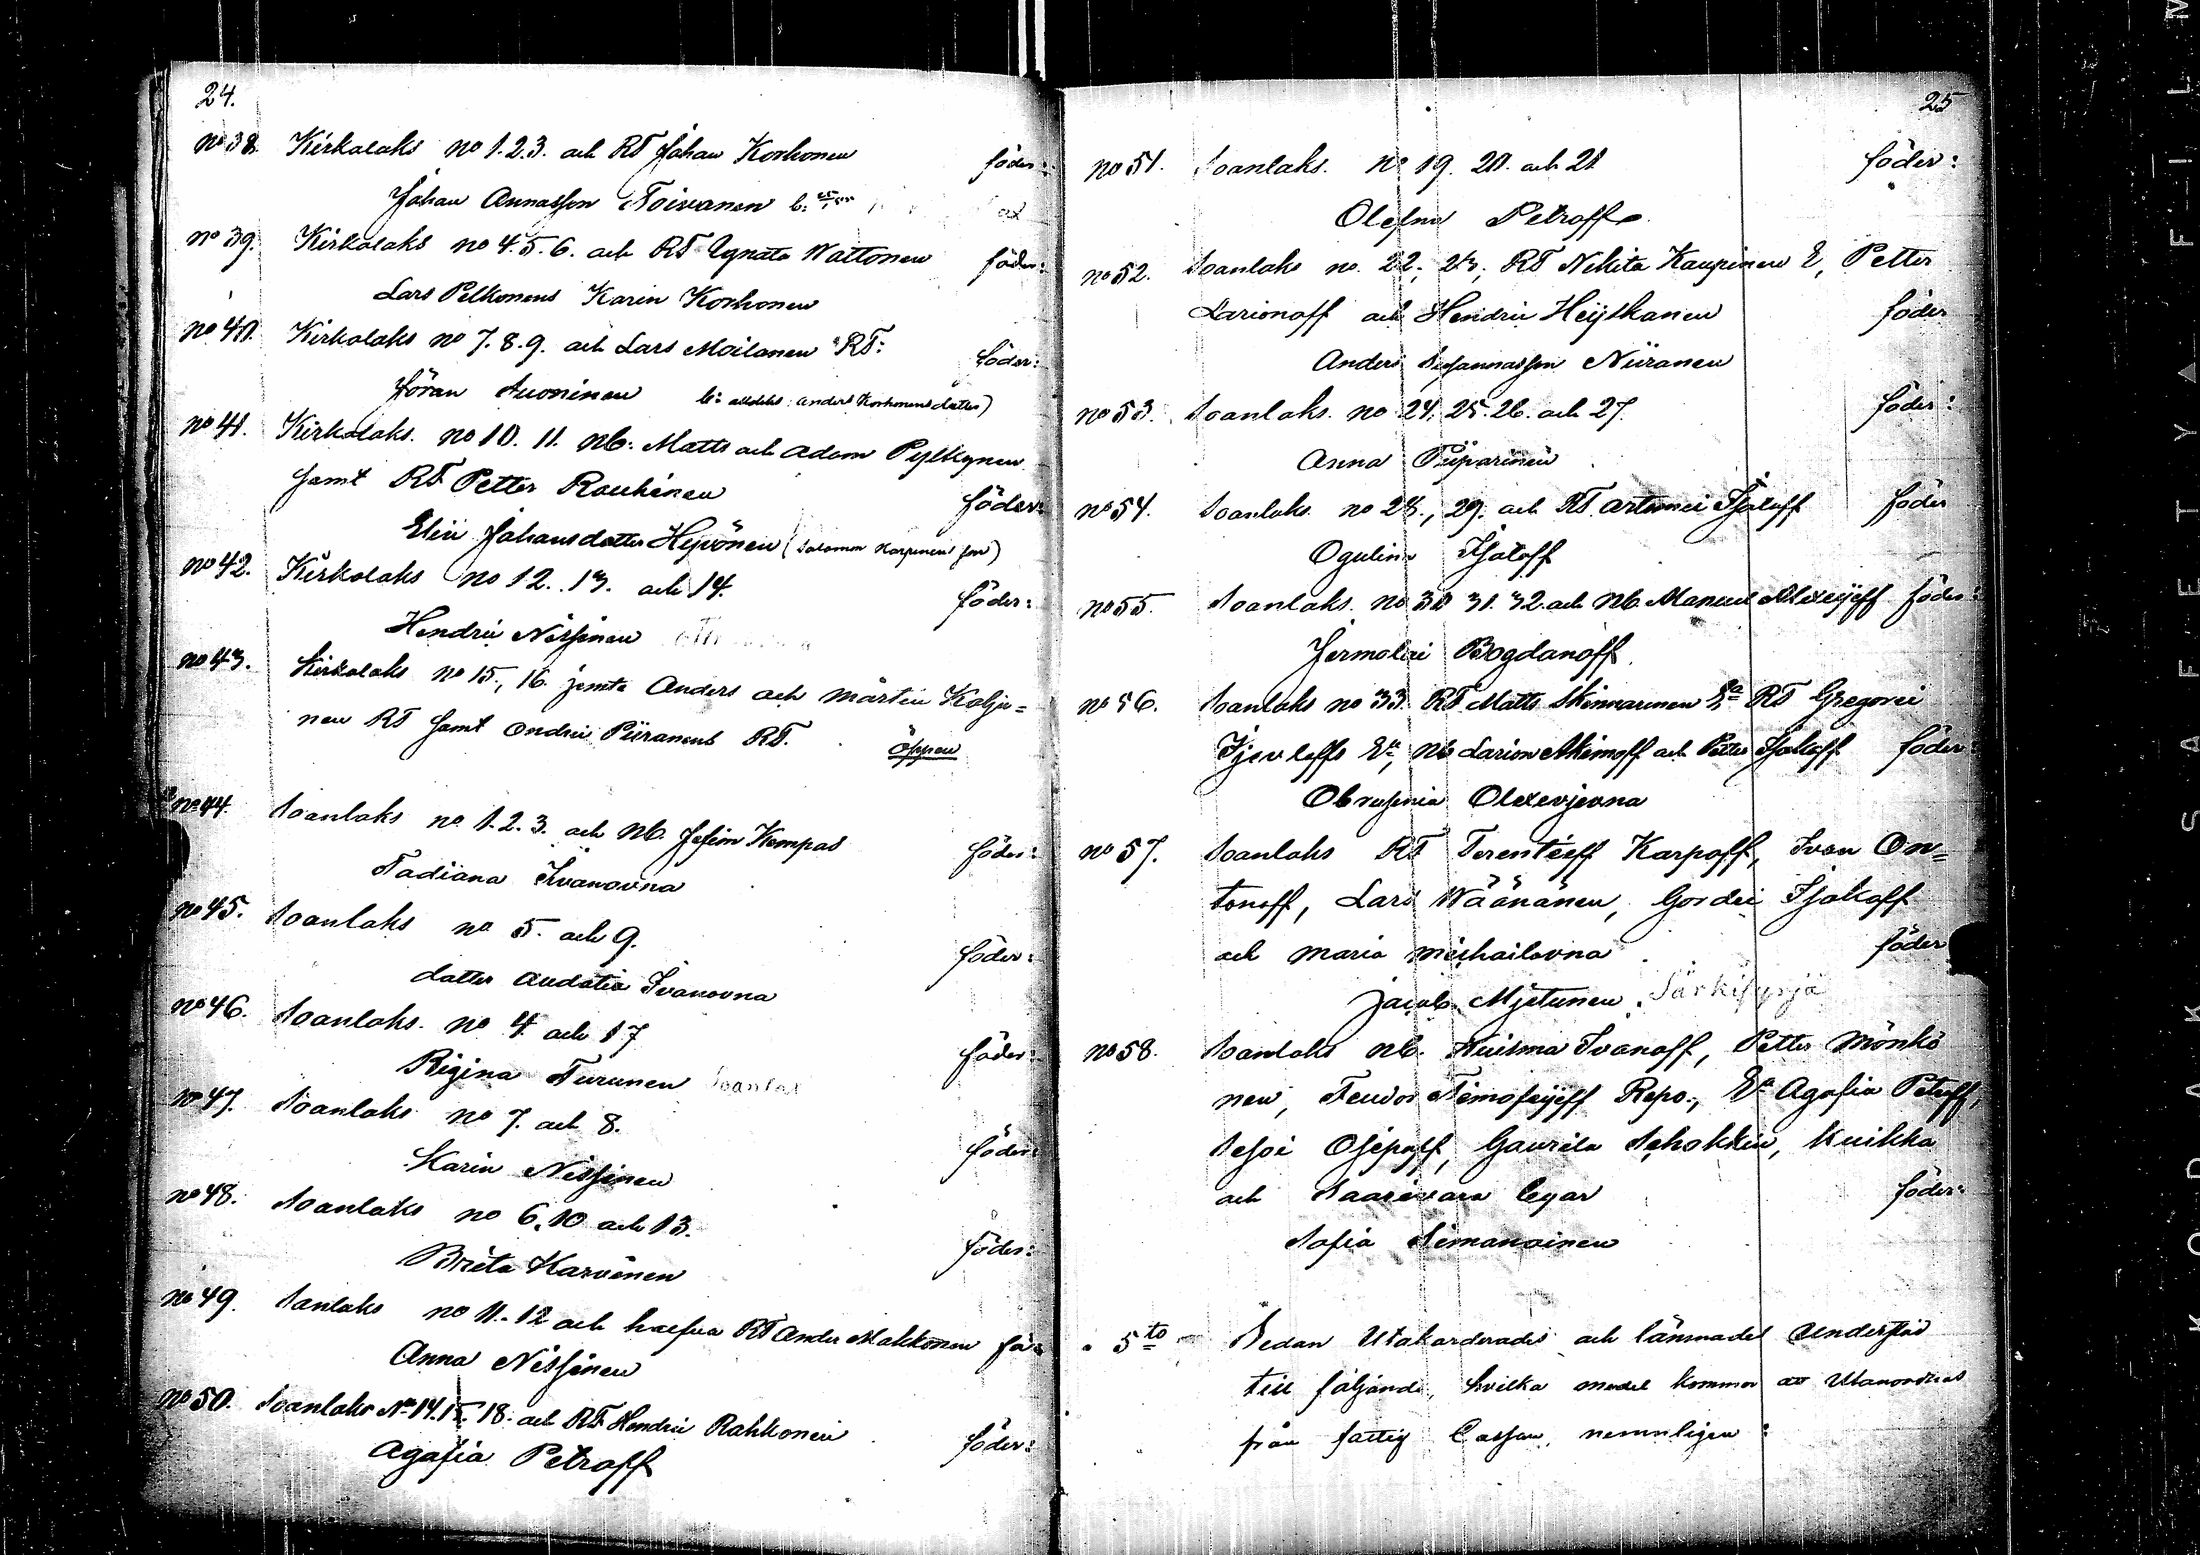 24.
No 38. Kirkolaks no 1. 2. 3. och RT Johan Korhonen föder:
Johan Annasson Toivanen
No 39. Kirkolaks no 4. 5. 6. och RT Ignats Wattonen föder:
Lars Pelkonens Karin Korhonen
No 40. Kirkolaks no 7. 8. 9. och Lars Moilanen RT: föder:
Jöran Auoninen Anders Korhonens dotter)
No 41. Kirkolaks. no 10. 11. Nb: Matts och Adam Pylkynen
samt RT Petter Rouhinen föder:
Elin Johansdotter Heyvönen (Salomon Karpinens son)
No 42. Kirkolaks no 12. 13. och 14. föder:
Hendric Nissinen
No 43. Kirkolaks no 15., 16. jemte Anders och Mårten Kolju=
nen RT samt Ondrei Piiranens RT. öppen
No 44. Soanlaks no 1. 2. 3. och Nb. Jefim Kompas föder:
Tadiana Ivanovna
No 45. Soanlaks no 5. och 9. föder:
dotter Audotia Ivanovna
No 46. Soanlaks. no 4 och 17 föder:
Rigina Turunen Soanlax
No 47. Soanlaks no 7. och 8. föder:
Karin Nissinen
No 48. Soanlaks no 6. 10 och 13. föder:
Brita Karvinen
No 49. Sanlaks no 11. 12 och hwefva RT Ander Makkonen fö:
Anna Nissinen
No 50. Soanlaks No 14. 15. 18. och RT Hendric Rahkonen föder:
Agafia Petroff
25
No 51. Soanlaks. No 19. 20. och 21 föder:
Olefna Petroff
No 52. Soanlaks no. 22, 23, RT Nikita Kaupinen E, Petter
Larionoff och Hendric Heyskanen föder
Anders Susannasson Niiranen
No 53. Soanlaks. no 24. 25. 26. och 27. föder:
Anna Piiparinen
No 54. Soanlaks no 28., 29. och RT Artemei Isakoff föder
Ogulina Isakoff
No 55. Soanlaks. no 30 31. 32. och Nb. Manuel Alexeijeff föder:
Jermolai Bogdanoff.
No 56. Soanlaks no 33. RT Matts Skinnarinen Ea RT Gregorei
Ijevleffs Ea, Nb Larion Akimoff och Petter Isakoff föder:
Obrasenia Olexevjevna
No 57. Soanlaks RT Terentieff Karpoff, Ivan On=
tonoff, Lars Wäänänen, Gordei Isakoff
och Maria Michailovna föder
Jacob Mjetunen. Särkisyrjä
No 58. Soanlaks Nb. Kuisma Ivanoff, Petter Mönkö
nen, Feudor Timofeijeff Repo., Ea Agafia Petroff,
Sesoi Osipoff, Gavrila Schokkin, Kuikka
och Saarivara legor föder:
Sofia Simanainen
5to Sedan Utakorderades och lämnades Understöd
till följande, hvilka medel kommer att Utanordnas
från fattig Cassan, nemnligen: